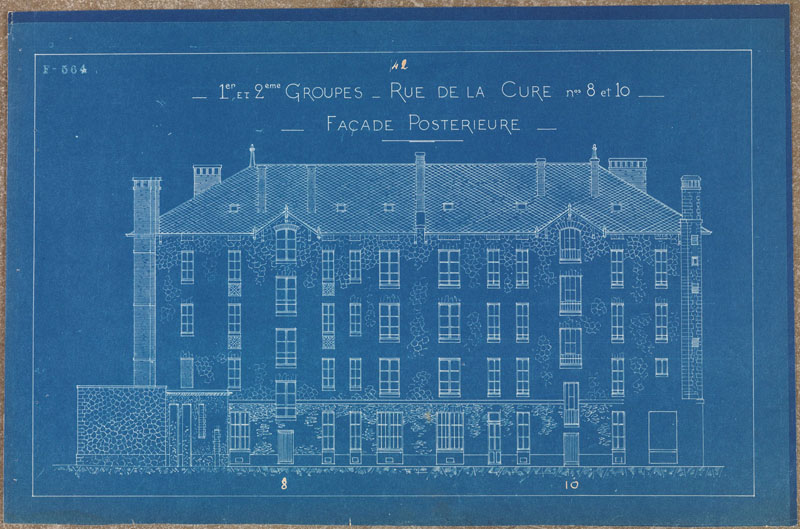 42
F-564
1er ET 2eme GROUPES _ RUE DE LA CURE nos 8 et 10
FAÇADE POSTERIEURE
8 10